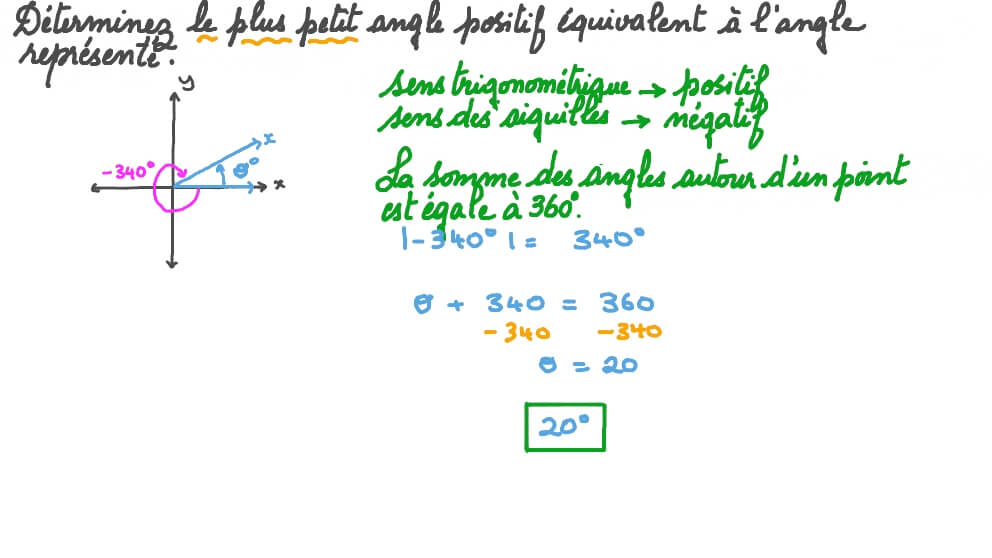 Déterminez le plus petit angle positif équivalent à l'angle
représenté.
y
-340°
x
θ°
x
sens trigonométrique → positif
sens des aiguilles → négatif
La somme des angles autour d'un point
est égale à 360°.
|-340°| = 340°
θ + 340 = 360
-340 -340
θ = 20
20°